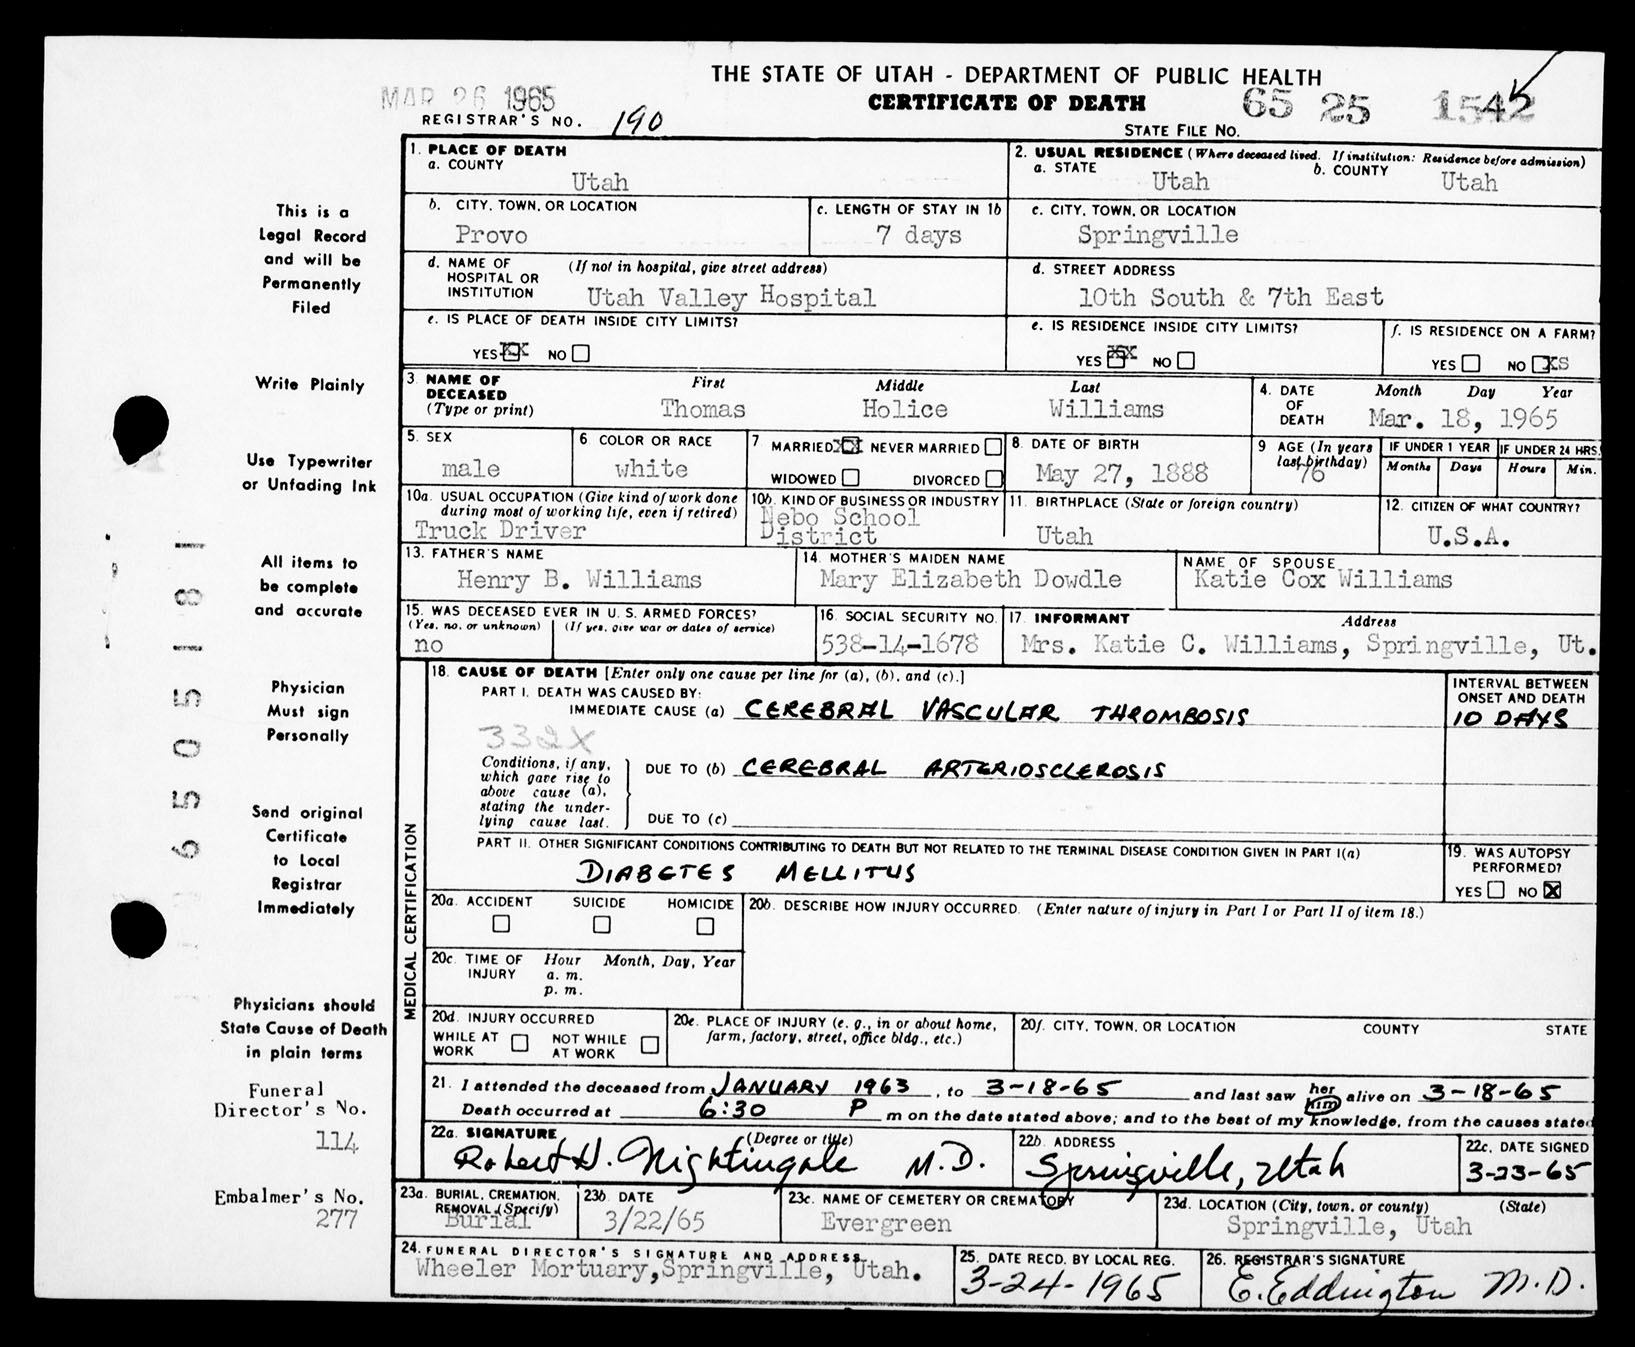 THE STATE OF UTAH - DEPARTMENT OF PUBLIC HEALTH
CERTIFICATE OF DEATH
MAR 26 1965
REGISTRAR'S NO. 190
65 25 1542
STATE FILE NO.
This is a
Legal Record
and will be
Permanently
Filed
Write Plainly
Use Typewriter
or Unfading Ink
All items to
be complete
and accurate
Physician
Must sign
Personally
Send original
Certificate
to Local
Registrar
Immediately
Physicians should
State Cause of Death
in plain terms
Funeral
Director's No.
114
Embalmer's No.
277
65050181
1. PLACE OF DEATH
a. COUNTY
Utah
2. USUAL RESIDENCE (Where deceased lived. If institution: Residence before admission)
a. STATE
Utah
b. COUNTY
Utah
b. CITY, TOWN, OR LOCATION
Provo
c. LENGTH OF STAY IN 1b
7 days
c. CITY, TOWN, OR LOCATION
Springville
d. NAME OF HOSPITAL OR INSTITUTION (If not in hospital, give street address)
Utah Valley Hospital
d. STREET ADDRESS
10th South & 7th East
e. IS PLACE OF DEATH INSIDE CITY LIMITS?
YES XX NO
e. IS RESIDENCE INSIDE CITY LIMITS?
YES XX NO
f. IS RESIDENCE ON A FARM?
YES NO XS
3. NAME OF DECEASED (Type or print)
First Middle Last
Thomas Holice Williams
4. DATE OF DEATH
Month Day Year
Mar. 18, 1965
5. SEX
male
6 COLOR OR RACE
white
7 MARRIED XX NEVER MARRIED
WIDOWED DIVORCED
8. DATE OF BIRTH
May 27, 1888
9 AGE (In years last birthday)
76
IF UNDER 1 YEAR
Months Days
IF UNDER 24 HRS.
Hours Min.
10a. USUAL OCCUPATION (Give kind of work done during most of working life, even if retired)
Truck Driver
10b. KIND OF BUSINESS OR INDUSTRY
Nebo School
District
11. BIRTHPLACE (State or foreign country)
Utah
12. CITIZEN OF WHAT COUNTRY?
U.S.A.
13. FATHER'S NAME
Henry B. Williams
14. MOTHER'S MAIDEN NAME
Mary Elizabeth Dowdle
NAME OF SPOUSE
Katie Cox Williams
15. WAS DECEASED EVER IN U. S. ARMED FORCES?
(Yes, no, or unknown) (If yes, give war or dates of service)
no
16. SOCIAL SECURITY NO.
538-14-1678
17. INFORMANT Address
Mrs. Katie C. Williams, Springville, Ut.
MEDICAL CERTIFICATION
18. CAUSE OF DEATH [Enter only one cause per line for (a), (b), and (c).]
PART I. DEATH WAS CAUSED BY:
IMMEDIATE CAUSE (a) CEREBRAL VASCULAR THROMBOSIS
INTERVAL BETWEEN ONSET AND DEATH
10 DAYS
332X
Conditions, if any, which gave rise to above cause (a), stating the underlying cause last.
DUE TO (b) CEREBRAL ARTERIOSCLEROSIS
DUE TO (c)
PART II. OTHER SIGNIFICANT CONDITIONS CONTRIBUTING TO DEATH BUT NOT RELATED TO THE TERMINAL DISEASE CONDITION GIVEN IN PART I(a)
DIABETES MELLITUS
19. WAS AUTOPSY PERFORMED?
YES NO X
20a. ACCIDENT SUICIDE HOMICIDE
20b. DESCRIBE HOW INJURY OCCURRED. (Enter nature of injury in Part I or Part II of item 18.)
20c. TIME OF INJURY Hour Month, Day, Year
a. m.
p. m.
20d. INJURY OCCURRED
WHILE AT WORK NOT WHILE AT WORK
20e. PLACE OF INJURY (e. g., in or about home, farm, factory, street, office bldg., etc.)
20f. CITY, TOWN, OR LOCATION COUNTY STATE
21. I attended the deceased from JANUARY 1963, to 3-18-65 and last saw her him alive on 3-18-65
Death occurred at 6:30 P m on the date stated above; and to the best of my knowledge, from the causes stated
22a. SIGNATURE (Degree or title)
Robert H. Nightingale M.D.
22b. ADDRESS
Springville, Utah
22c. DATE SIGNED
3-23-65
23a. BURIAL, CREMATION, REMOVAL (Specify)
Burial
23b. DATE
3/22/65
23c. NAME OF CEMETERY OR CREMATORY
Evergreen
23d. LOCATION (City, town, or county) (State)
Springville, Utah
24. FUNERAL DIRECTOR'S SIGNATURE AND ADDRESS
Wheeler Mortuary, Springville, Utah.
25. DATE RECD. BY LOCAL REG.
3-24-1965
26. REGISTRAR'S SIGNATURE
E. Eddington M.D.